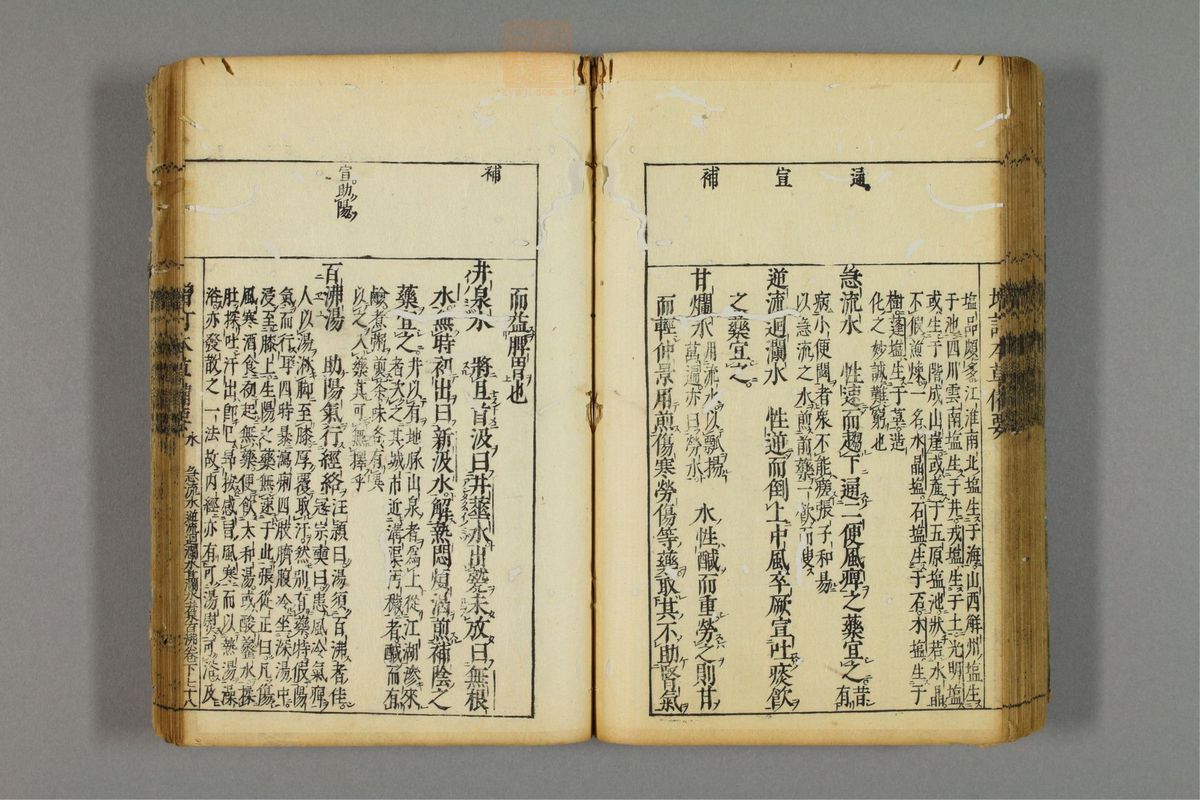 通
宣
補
塩品頗多江淮南北塩生于海山西解州塩生
于池四川雲南塩生于井戎塩生于土光明塩
或生于階成山崖或産于五原塩池狀若水晶
不假煎煉一名水晶塩石塩生于石木塩生于
樹蓬塩生于草造
化之妙誠難窮也
急流水 性速而趨下通二便風痺之藥宜之 昔有
病小便閟者衆不能瘥張子和易
以急流之水煎前藥一飲而溲
逆流迴瀾水 性逆而倒上中風卒厥宣吐痰飲
之藥宜之
甘爛水 用流水以瓢揚萬遍亦曰勞水 水性醎而重勞之則甘
而輕仲景用煎傷寒勞傷等藥取其不助腎氣
補
宣助陽
而益脾胃也
井泉水 將旦首汲曰井華水出甃未放曰無根
水無時初出曰新汲水解熱悶煩渴煎補陰之
藥宜之 井以有地脉山泉者為上從江湖滲來
者次之其城市近溝渠汚穢者醎而有
鹼煮粥煎茶味各有異
以之入藥其可無擇乎
百沸湯 助陽氣行經絡 汪頴曰湯須百沸者佳寇宗奭曰患風冷氣痺
人以湯淋脚至膝厚覆取汗然別有藥特假陽
氣而行耳四時暴瀉痢四肢臍腹冷坐深湯中
浸至膝上生陽之藥無速于此張從正曰凡傷
風寒酒食初起無藥便飲太和湯或酸虀水揉
肚探吐汗出即已昻按感冒風寒而以熱湯澡
浴亦發散之一法故内經亦有可湯熨可浴及
增訂本草備要 水 急流水 逆流迴瀾水 甘爛水 井泉 百沸 卷下 七十八